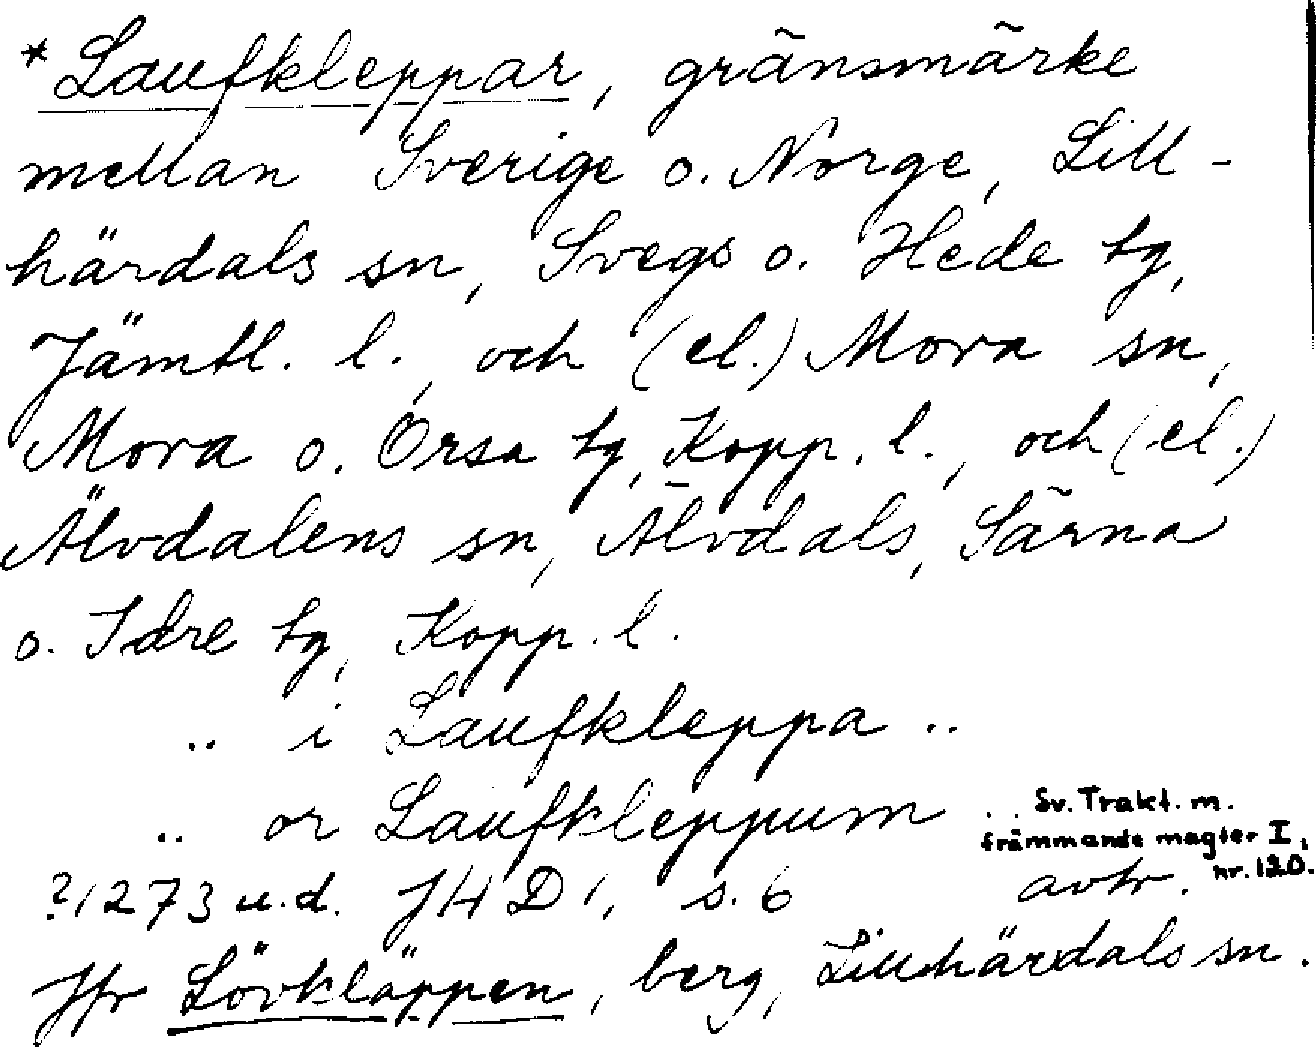 * Laufkleppar, gränsmärke
mellan Sverige o. Norge, Lill-
härdals sn, Svegs o. Hede tg,
Jämtl. l., och (el.) Mora sn,
Mora o. Orsa tg, Kopp. l., och (el.)
Älvdalens sn, Älvdals, Särna
o. Idre tg, Kopp. l.
.. i Laufkleppa ..
.. or Laufkleppum ..
Sv. Trakt. m.
främmande magter I,
nr. 120.
?1273 u.d. JHD 1, s. 6 avtr.
Jfr Lövkläppen, berg, Lillhärdals sn.